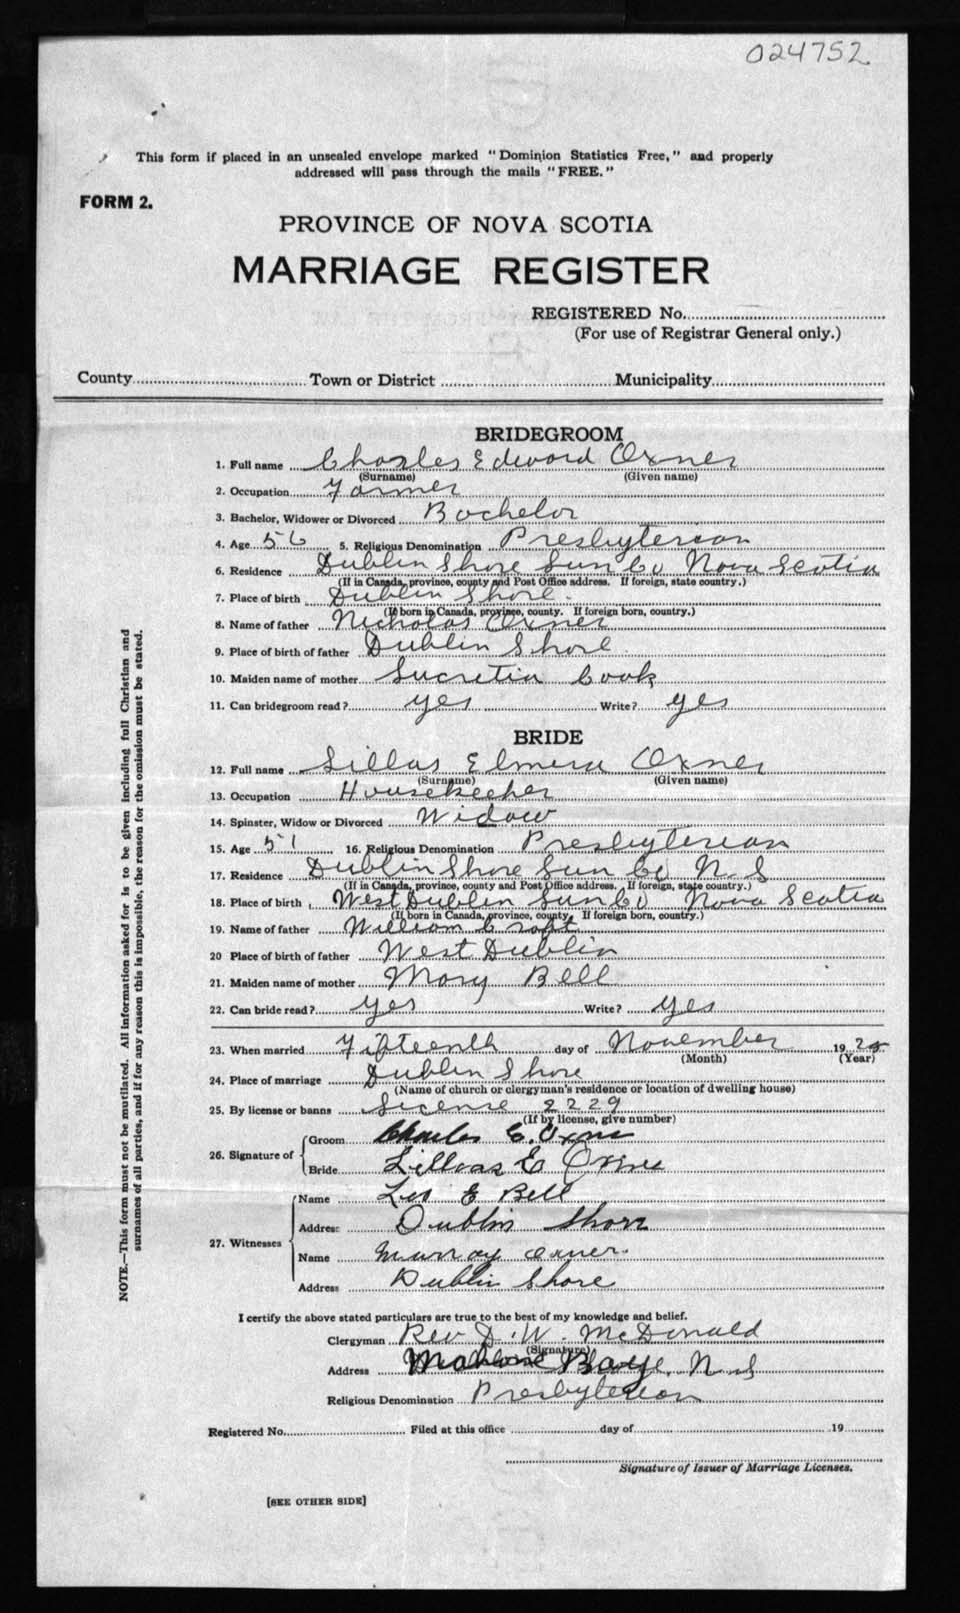 024752
This form if placed in an unsealed envelope marked "Dominion Statistics Free," and properly
addressed will pass through the mails "FREE."
FORM 2.
PROVINCE OF NOVA SCOTIA
MARRIAGE REGISTER
REGISTERED No.
(For use of Registrar General only.)
County Town or District Municipality
BRIDEGROOM
1. Full name Charles Edward Oxner
(Surname) (Given name)
2. Occupation Farmer
3. Bachelor, Widower or Divorced Bachelor
4. Age 56 5. Religious Denomination Presbyterian
6. Residence Dublin Shore Lun Co Nova Scotia
(If in Canada, province, county and Post Office address. If foreign, state country.)
7. Place of birth Dublin Shore.
(If born in Canada, province, county. If foreign born, country.)
8. Name of father Nicholas Oxner
9. Place of birth of father Dublin Shore
10. Maiden name of mother Lucretia Cook
11. Can bridegroom read? yes Write? yes
BRIDE
12. Full name Lillas Elmera Oxner
(Surname) (Given name)
13. Occupation Housekeeper
14. Spinster, Widow or Divorced Widow
15. Age 51 16. Religious Denomination Presbyterian
17. Residence Dublin Shore Lun Co N.S
(If in Canada, province, county and Post Office address. If foreign, state country.)
18. Place of birth West Dublin Lun Co Nova Scotia
(If born in Canada, province, county. If foreign born, country.)
19. Name of father William Croft
20 Place of birth of father West Dublin
21. Maiden name of mother Mary Bell
22. Can bride read? yes Write? yes
23. When married Fifteenth day of November 19
(Month) (Year)
24. Place of marriage Dublin Shore
(Name of church or clergyman's residence or location of dwelling house)
25. By license or banns License 2229
(If by license, give number)
26. Signature of
Groom Charles E. Oxner
Bride Lillas E Oxner
27. Witnesses
Name Leo E Bell
Address Dublin Shore
Name Murray Oxner.
Address Dublin Shore
I certify the above stated particulars are true to the best of my knowledge and belief.
Clergyman Rev D. W. McDonald
(Signature)
Address Mahone Bay N.S
Religious Denomination Presbyterian
Registered No. Filed at this office day of 19
Signature of Issuer of Marriage Licenses.
[SEE OTHER SIDE]
NOTE.—This form must not be mutilated. All information asked for is to be given including full Christian and
surnames of all parties, and if for any reason this is impossible, the reason for the omission must be stated.